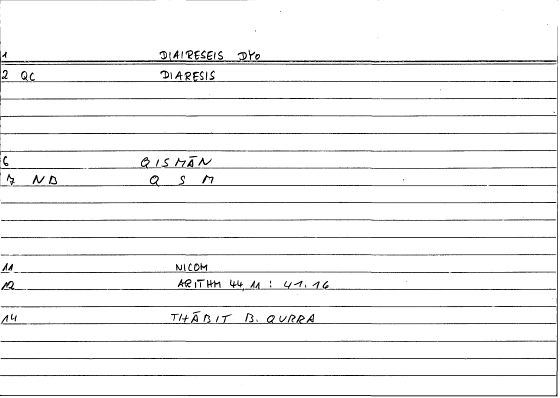 1 DIAIRESEIS DYO
2 QC DIARESIS
6 QISMĀN
7 ND Q S M
11 NICOM
12 ARITHM 44,11 : 41.16
14 THĀBIT B. QURRA